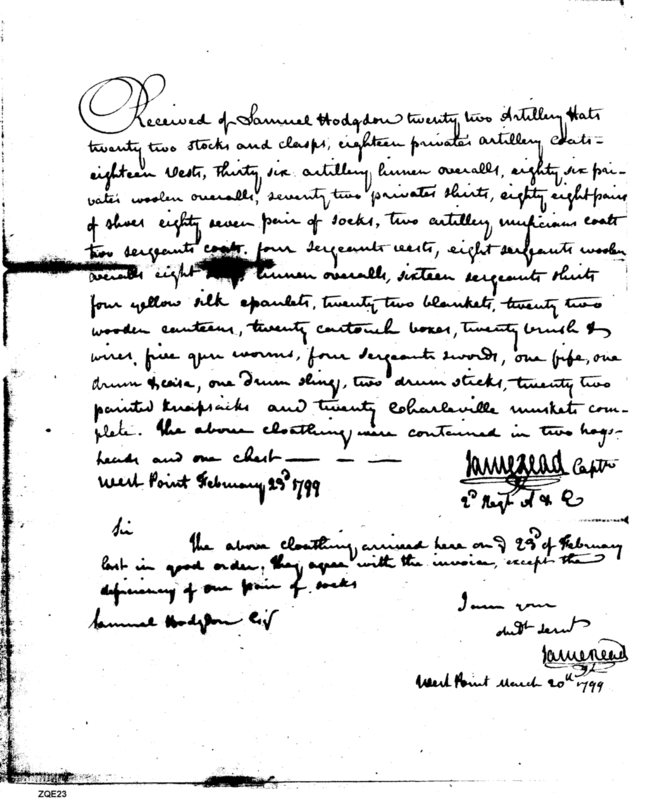 Received of Samuel Hodgdon twenty two Artillery Hats
twenty two stocks and clasps, eighteen privates artillery coats-
eighteen vests, thirty six artillery linnen overalls, eighty six pri-
vates woolen overalls, seventy two privates shirts, eighty eight pairs
of shoes eighty seven pair of socks, two artillery musicians coats
two sergeants coats, four sergeants vests, eight sergeants woolen
overalls eight linnen overalls, sixteen sergeants shirts
four yellow silk epaulets, twenty two blankets, twenty two
wooden canteens, twenty cartouch boxes, twenty brush &
wires, five gun worms, four sergeants swords, one fife, one
drum & case, one drum sling, two drum sticks, twenty two
painted knapsacks and twenty Charleville muskets com-
plete. The above cloathing were contained in two hogs-
heads and one chest — — —
James Read Captn
West Point February 23d 1799
2d Regt A & E
Sir
The above cloathing arrived here on 23d of February
last in good order. They agree with the invoice, except the
deficiency of one pair of socks
I am your
Samuel Hodgdon Esqr
obdt servt
James Read
West Point March 20th 1799
ZQE23